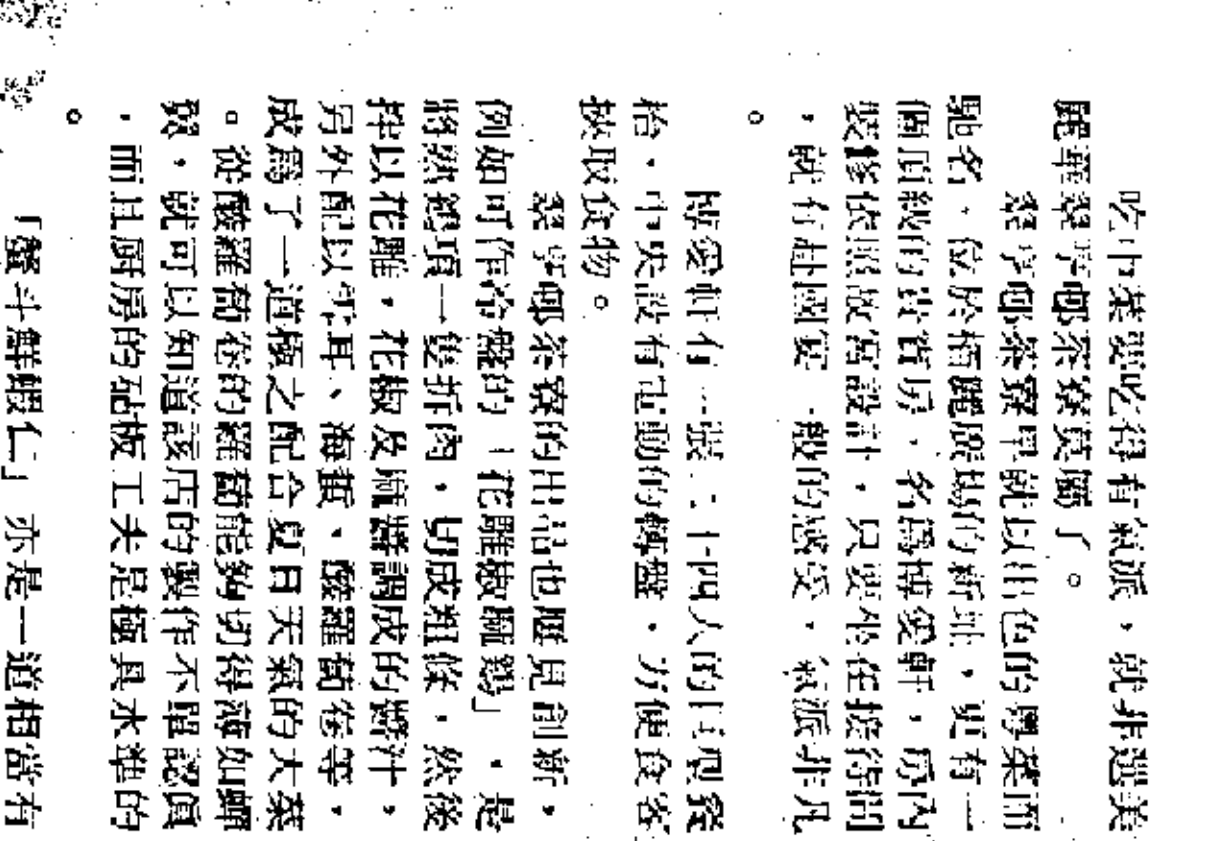 吃中菜要吃得有氣派，就非選美
麗華翠亨邨茶寮莫屬了。
翠亨邨茶寮早就以出色的粵菜而
馳名，位於栢麗廣塲的新址，更有一
個頂級的貴賓房，名爲博愛軒，房内
裝修依照故宮設計，只要坐在接待間
，就有如國宴一般的感受，氣派非凡
。
博愛軒有一張二十四人的巨型餐
枱，中央設有電動的轉盤，方便食客
挾取食物。
翠亨邨茶寮的出品也屢見創新，
例如可作冷盤的「花雕椒麻鷄」，是
將熟鷄項一隻折肉，切成粗條，然後
拌以花雕，花椒及麻醬調成的醬汁，
另外配以雲耳、海蜇、酸蘿蔔卷等，
放爲了一道極之配合夏日天氣的大菜
。從酸蘿蔔卷的蘿蔔能夠切得薄如蟬
翼，就可以知道該店的製作不單認眞
，而且廚房的砧板工夫是極具水準的
。
「蟹斗鮮蝦仁」亦是一道相當有